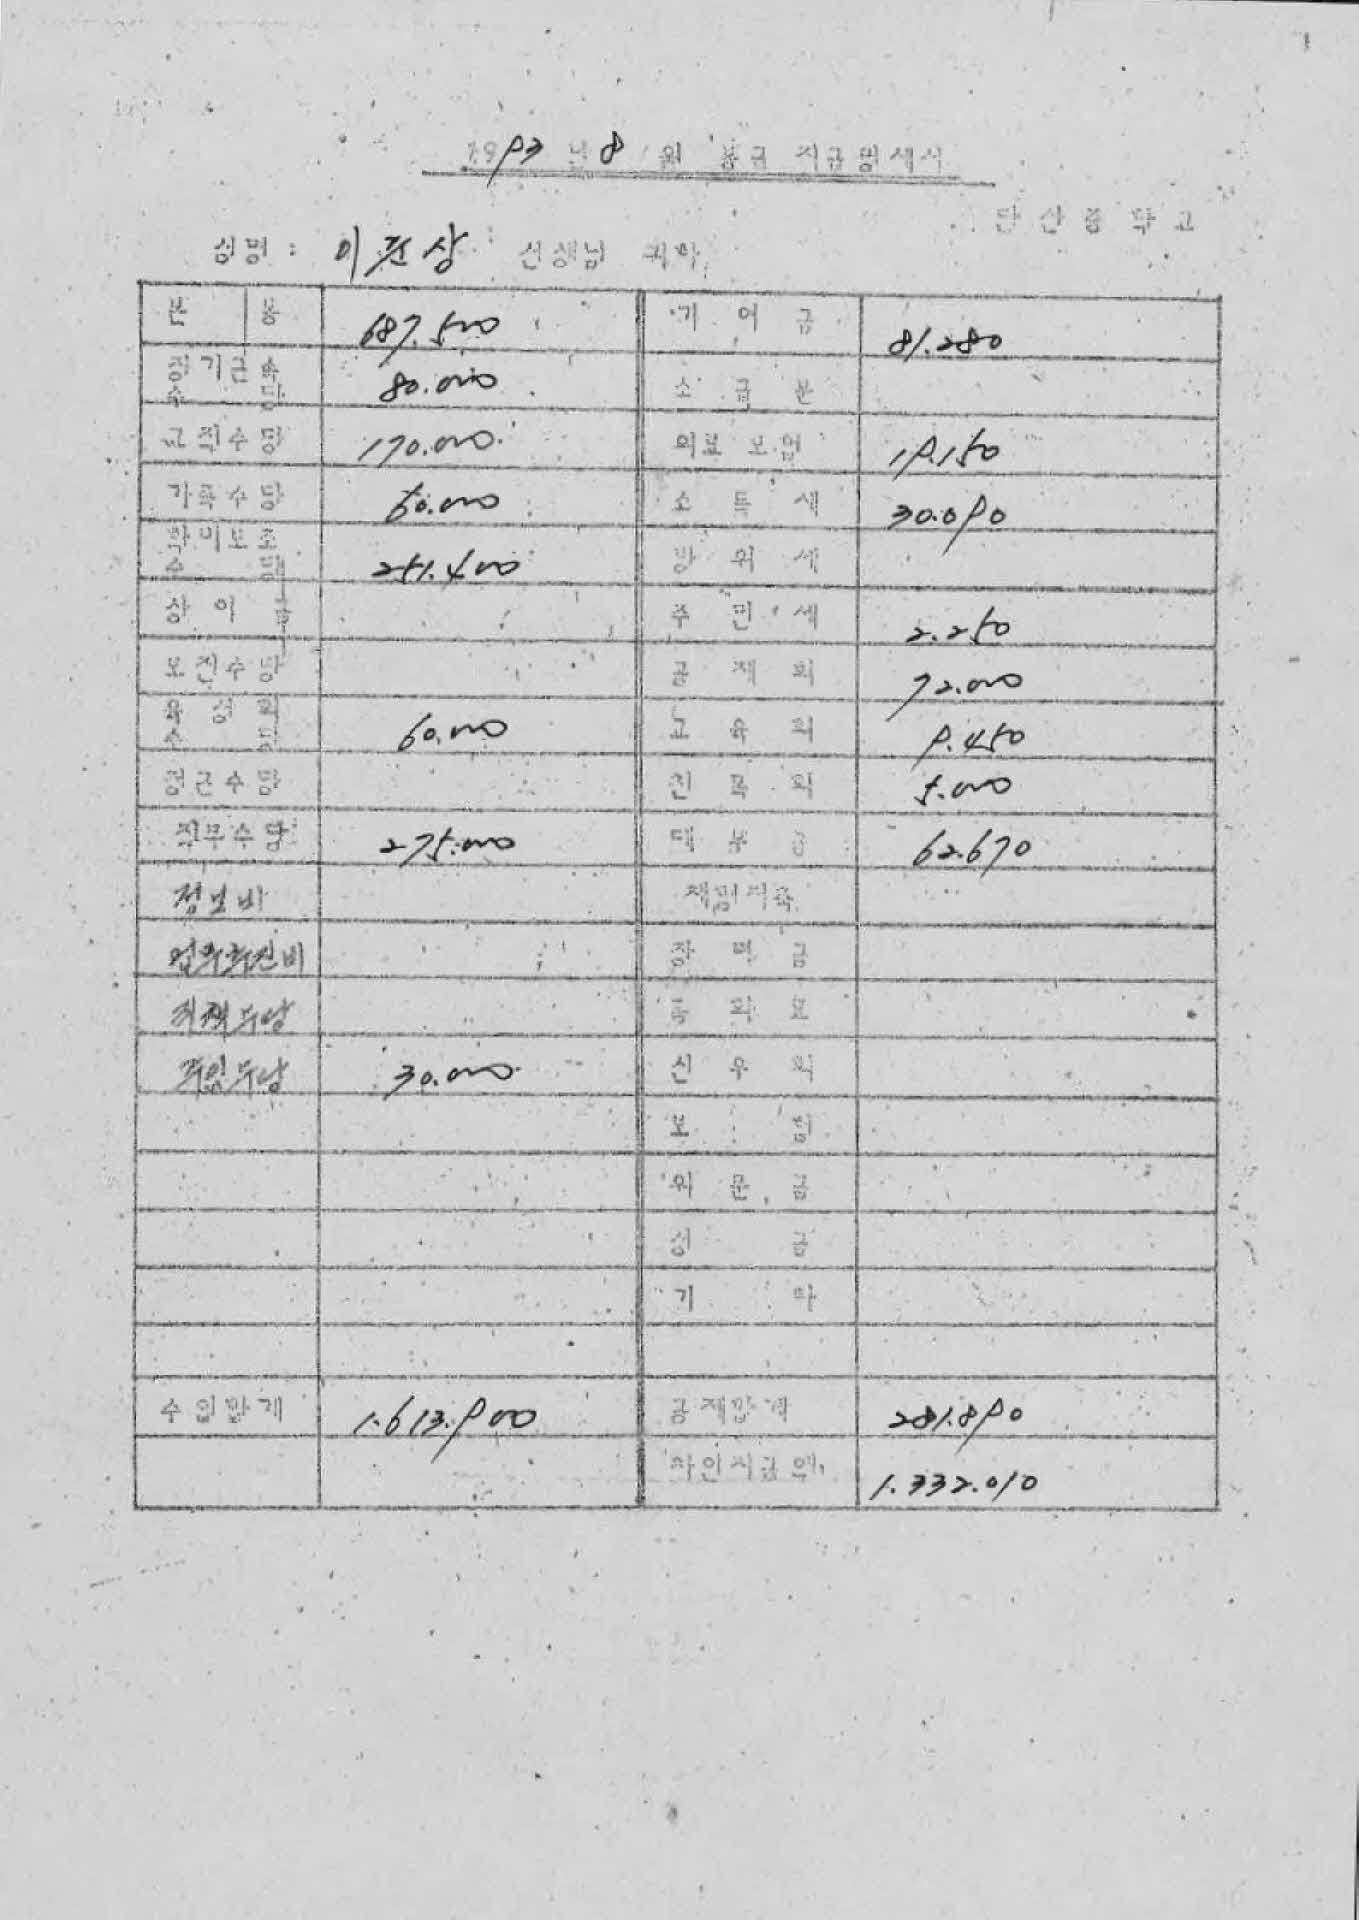 1993 년 8 월 봉급 지급명세서
단산중학교
성명 : 선생님 귀하
본 봉 687.500 기여금 81.280
장기근속수당 80.000 소급분
교직수당 170.000 의료보험 19.150
가족수당 60.000 소득세 30.090
학비보조수당 251.400 방위세
주민세 2.250
보전수당 공제회 72.000
육성회수당 60.000 교육회 9.450
정근수당 친목회 5.000
직무수당 275.000 대부금 62.670
정보비 재형저축
업무추진비 장학금
직책수당
주임수당 30.000 신우회
보험
위문금
성금
기타
수입합계 1.613.900 공제합계 281.890
차인지급액 1.332.010